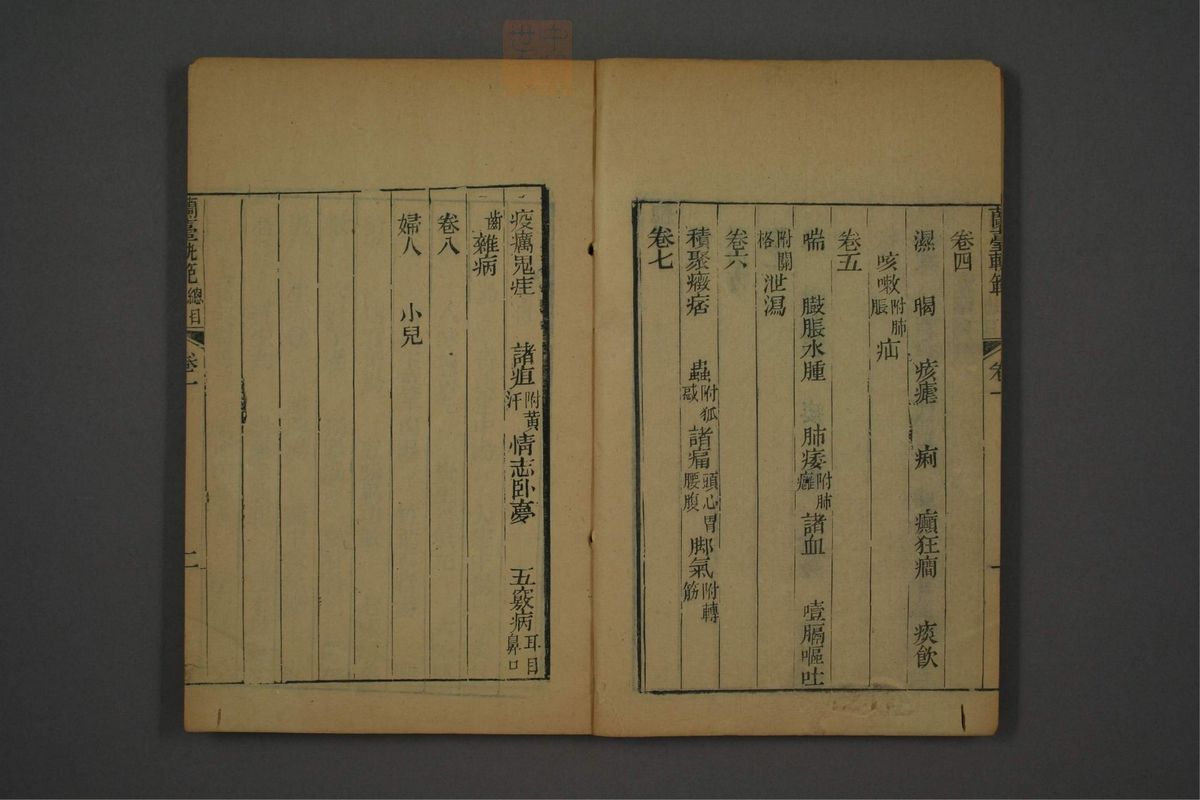 蘭臺軌範
卷一
卷四
濕　暍　痎瘧　痢　癲狂癎　痰飲
咳嗽附肺脹疝
卷五
喘　臌脹水腫　肺痿附肺癰諸血　噎膈嘔吐
附關格泄瀉
卷六
積聚癥痞　蟲附狐惑諸痛頭心胃腰腹脚氣附轉筋
卷七
疫癘鬼疰　諸疸附黃汗情志卧夢　五竅病耳目鼻口
齒雜病
卷八
婦人　小兒
蘭臺軌範總目
卷一
二